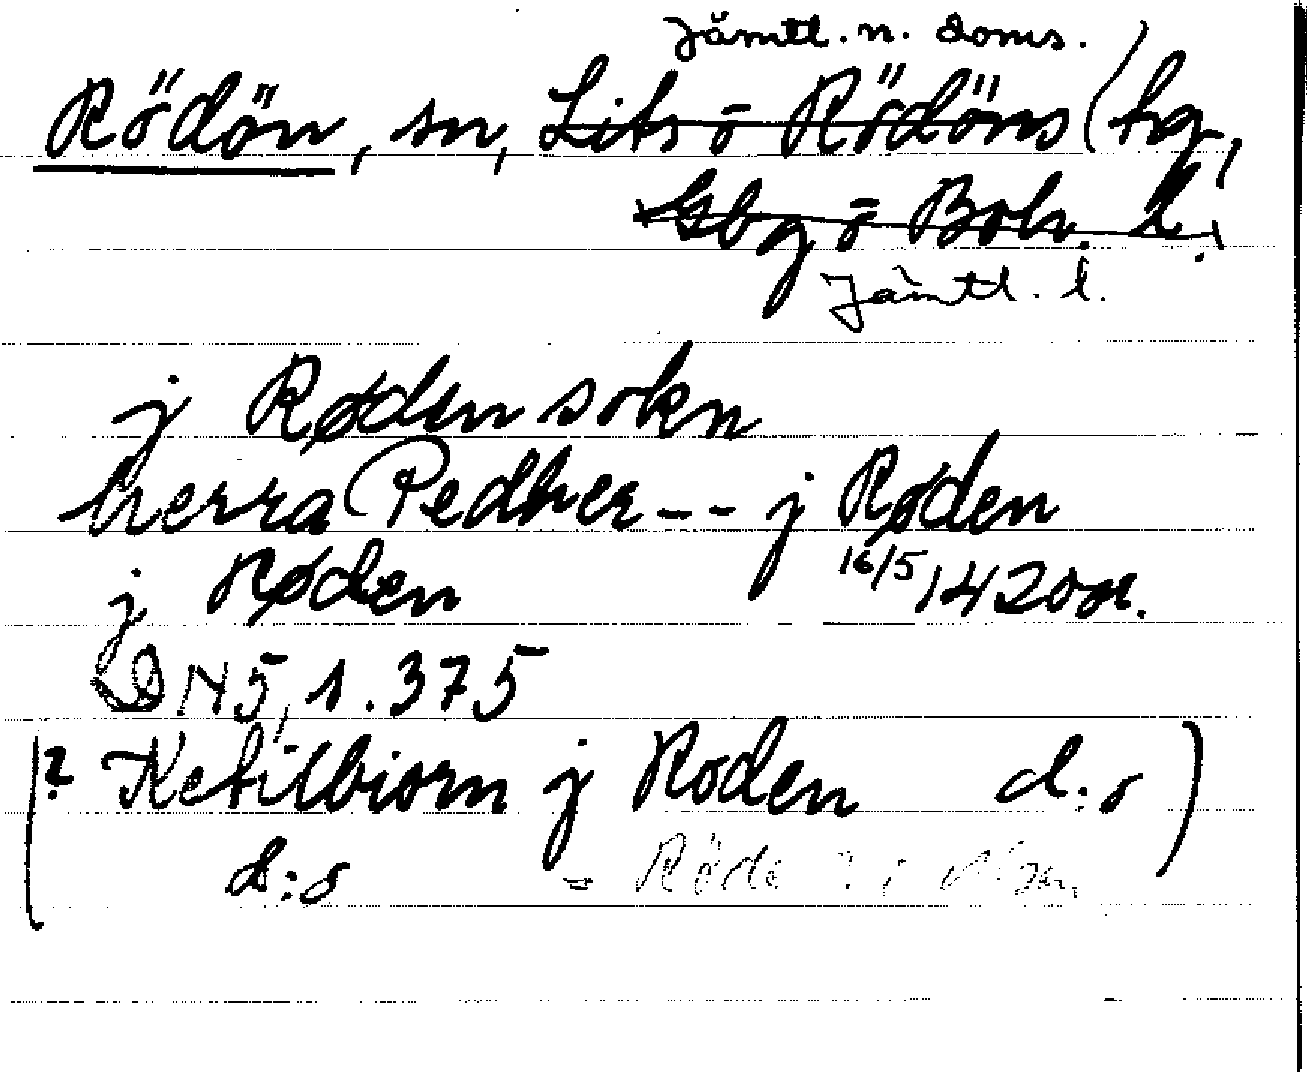 Jämtl. n. doms.
Rödön, sn, Lits o Rödöns hg,
Gbg o Boh. l.
Jämtl. l.
j Røden sokn
herra Pedher -- j Røden
j Røden 16/5 1420 or.
DN 5, 1. 375
(? Ketilbiorn j Roden d:o)
d:o = Röde ? i